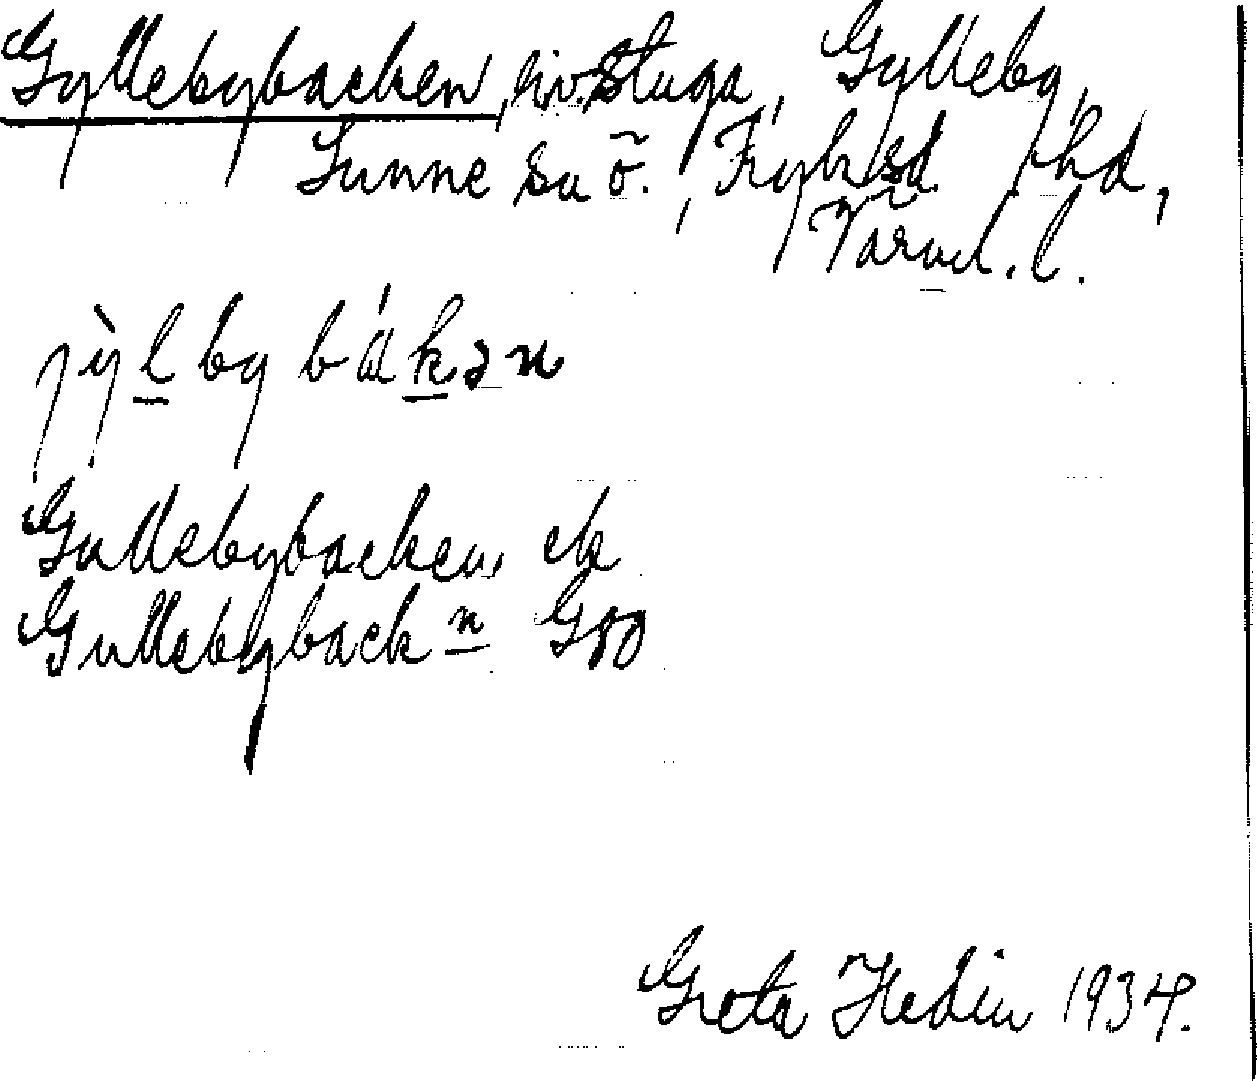 Gyllebybacken, riv. stuga, Gylleby,
Sunne sn ö., Fryksd. hd,
Värml. l.
jỳlby bákən
Gullebybacken, ek
Gullebybackn G80
Greta Hedin 1934.